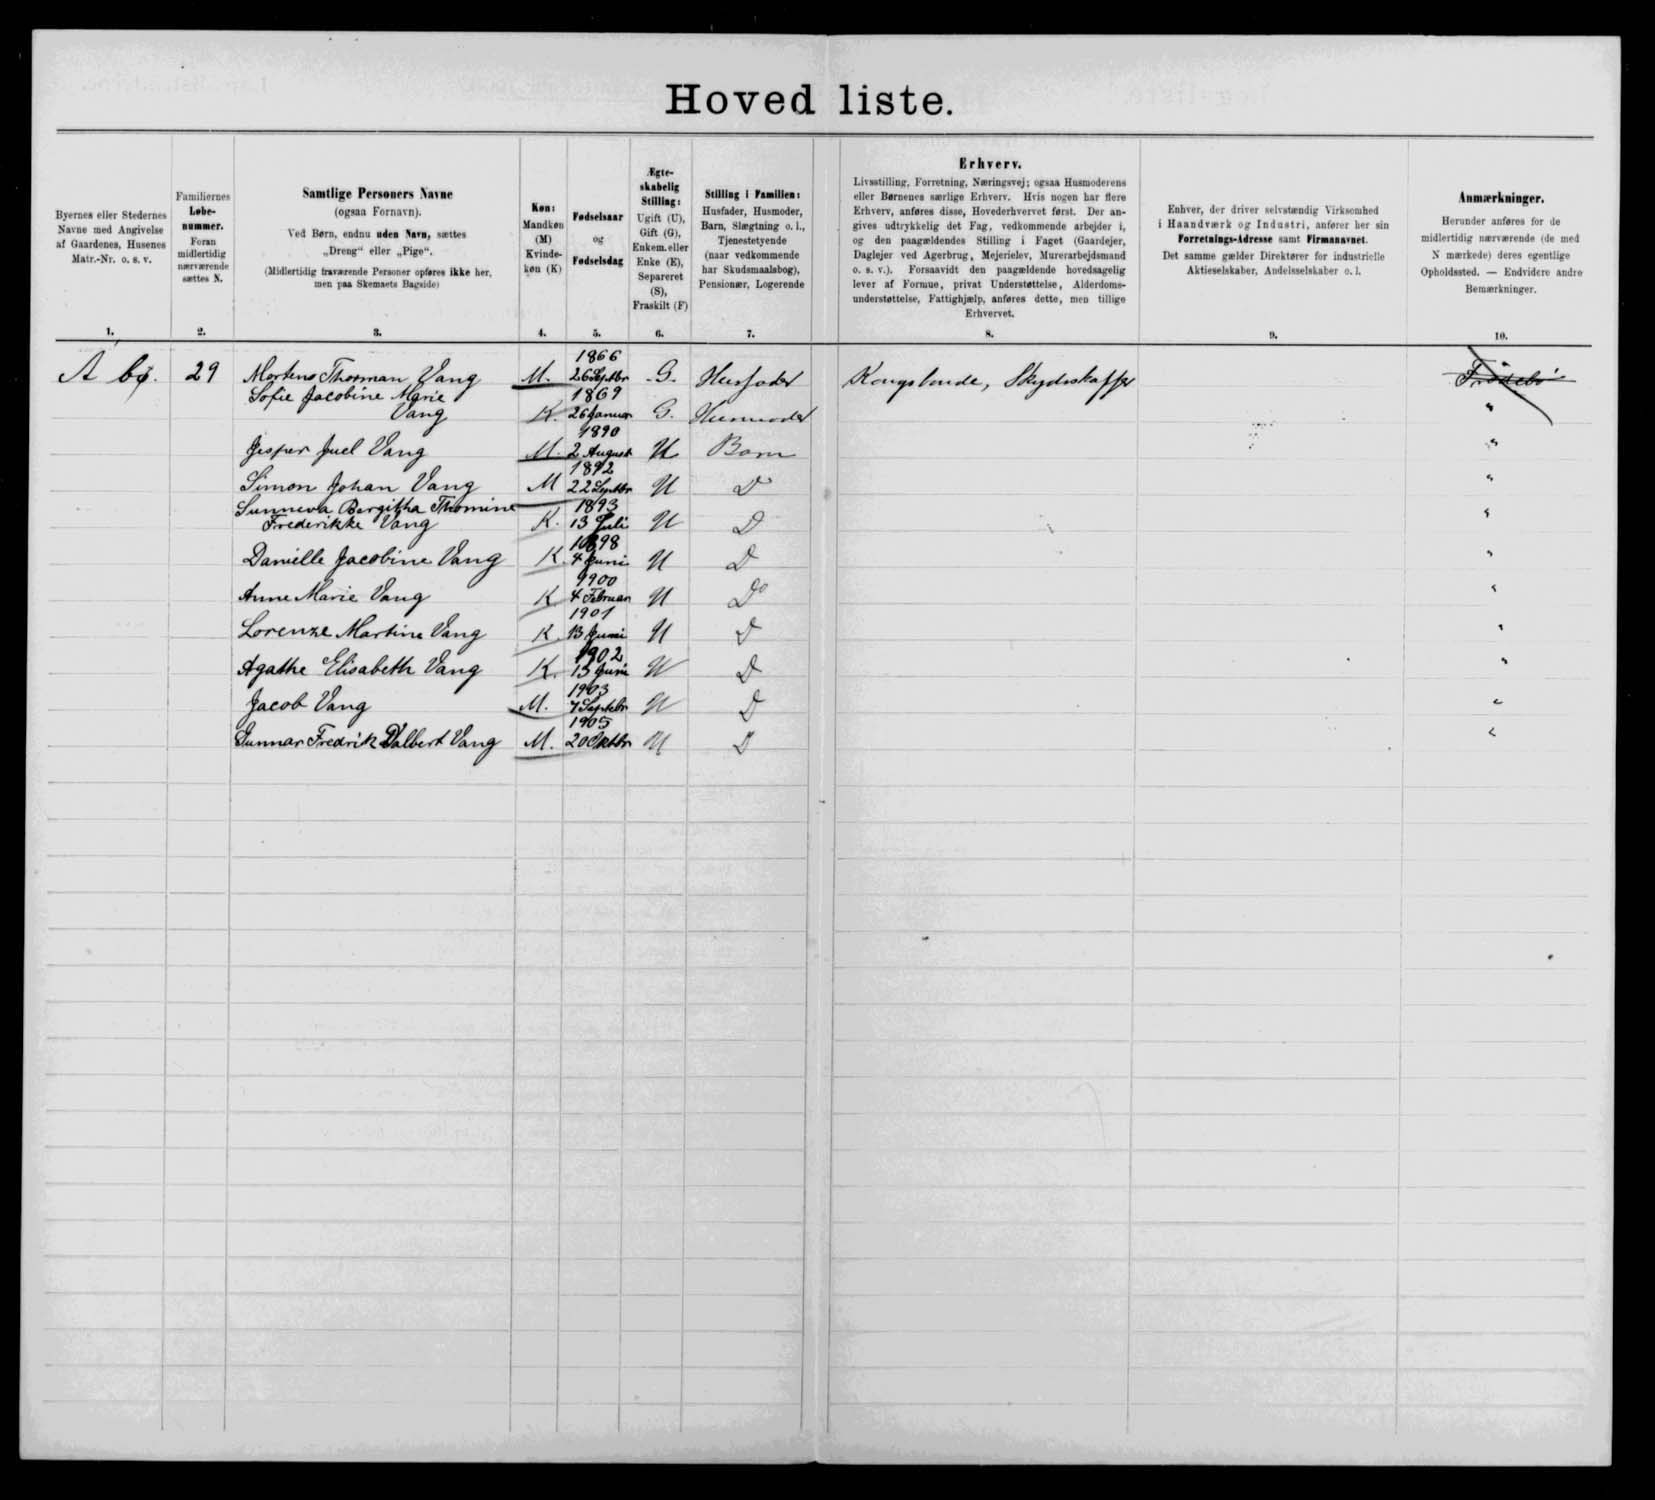 Hoved liste.
Byernes eller Stedernes
Navne med Angivelse
af Gaardenes, Husenes
Matr.-Nr. o. s. v.
1.
Familiernes
Løbe-
nummer.
Foran
midlertidig
nærværende
sættes N.
2.
Samtlige Personers Navne
(ogsaa Fornavn).
Ved Børn, endnu uden Navn, sættes
„Dreng“ eller „Pige“.
(Midlertidig fraværende Personer opføres ikke her,
men paa Skemaets Bagside)
3.
Køn:
Mandkøn
(M)
Kvinde-
køn (K)
4.
Fødselsaar
og
Fødselsdag
5.
Ægte-
skabelig
Stilling:
Ugift (U),
Gift (G),
Enkem. eller
Enke (E),
Separeret
(S),
Fraskilt (F)
6.
Stilling i Familien:
Husfader, Husmoder,
Barn, Slægtning o. l.,
Tjenestetyende
(naar vedkommende
har Skudsmaalsbog),
Pensionær, Logerende
7.
Erhverv.
Livsstilling, Forretning, Næringsvej; ogsaa Husmoderens
eller Børnenes særlige Erhverv. Hvis nogen har flere
Erhverv, anføres disse, Hovederhvervet først. Der an-
gives udtrykkelig det Fag, vedkommende arbejder i,
og den paagældendes Stilling i Faget (Gaardejer,
Daglejer ved Agerbrug, Mejerielev, Murerarbejdsmand
o. s. v.). Forsaavidt den paagældende hovedsagelig
lever af Formue, privat Understøttelse, Alderdoms-
understøttelse, Fattighjælp, anføres dette, men tillige
Erhvervet.
8.
Enhver, der driver selvstændig Virksomhed
i Haandværk og Industri, anfører her sin
Forretnings-Adresse samt Firmanavnet.
Det samme gælder Direktører for industrielle
Aktieselskaber, Andelsselskaber o. l.
9.
Anmærkninger.
Herunder anføres for de
midlertidig nærværende (de med
N mærkede) deres egentlige
Opholdssted. — Endvidere andre
Bemærkninger.
10.
A bø. 29 Mortens Thorman Vang M. 1866 26 Septbr G. Husfader Kongsbonde, Skydsskaffer
Sofie Jacobine Marie
Vang K. 1869 26 Januar G. Husmoder "
Jesper Juel Vang M. 1890 2 August U Barn "
Simon Johan Vang M 1892 22 Septbr U D "
Sunneva Bergitha Thomine
Frederikke Vang K. 1893 13 Juli U D "
Danielle Jacobine Vang K. 1898 4 Juni U D "
Anne Marie Vang K 1900 4 Februar U Do "
Lorenze Martine Vang K. 1901 13 Juni U D "
Agathe Elisabeth Vang K. 1902 13 Juni U D "
Jacob Vang M. 1903 7 Septbr U D "
Gunnar Fredrik Valbert Vang M. 1905 20 Oktbr U D "